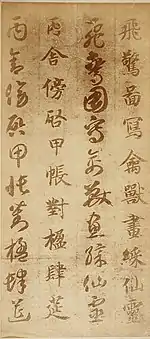 飛驚圖寫禽獸畫綵仙靈
飛驚圖寫禽獸畫綵仙靈
丙舍傍啓甲帳對楹肆筵
丙舍傍啓甲帳對楹肆筵